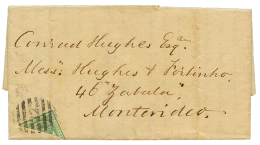 Conrad Hughes Esqr
Messrs Hughes & Fortinho,
46 "Zabala",
Montevideo.